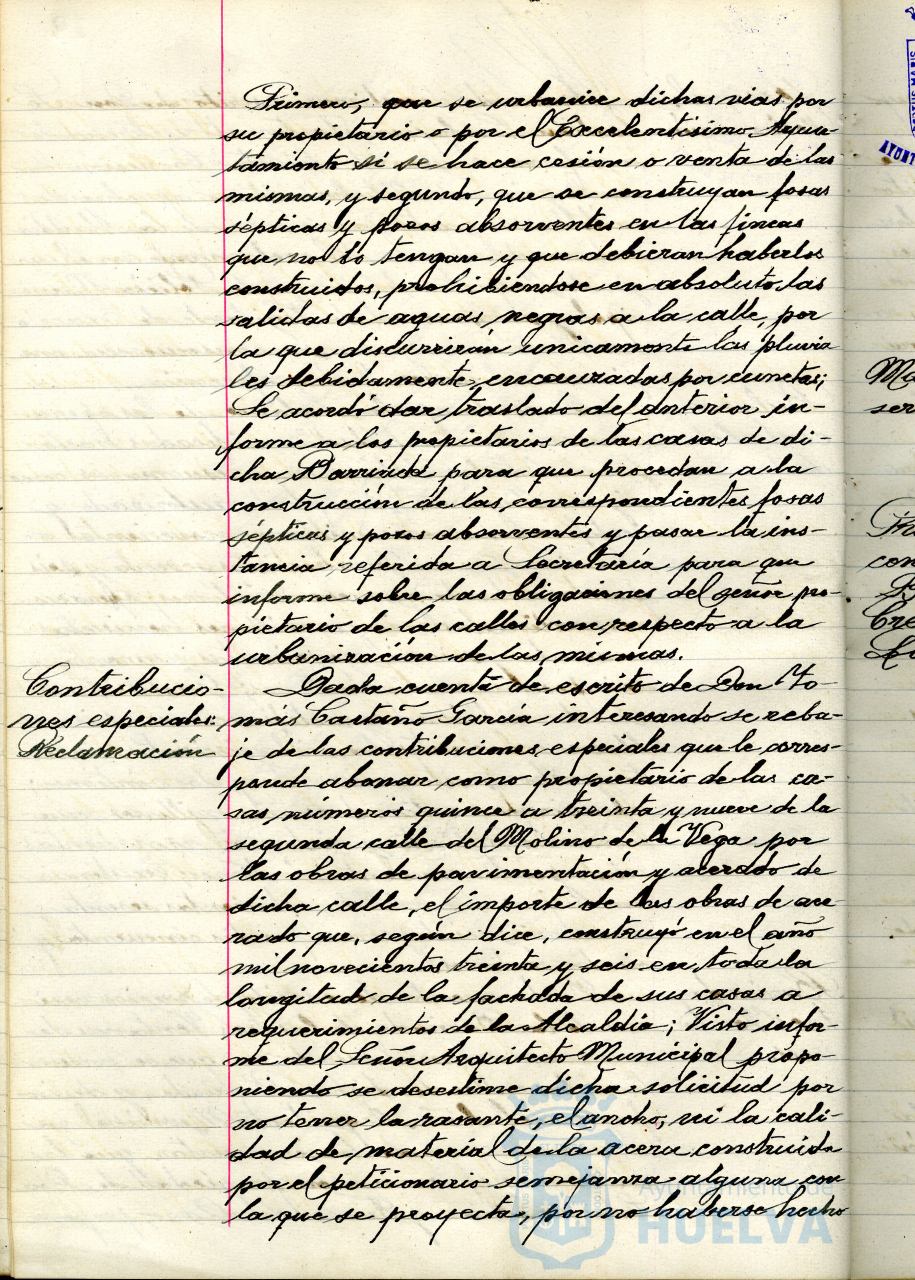 Primero, que se urbanice dichas vias por
su propietario o por el Excelentísimo Ayun-
tamiento si se hace cesión o venta de las
mismas, y segundo, que se construyan fosas
sépticas y pozos absorventes en las fincas
que no lo tengan y que debieran haberlos
construidos, prohibiendose en absoluto las
salidas de aguas negras a la calle, por
la que discurrirán unicamente las pluvia
les debidamente encauzadas por cunetas;
Se acordó dar traslado del anterior in-
forme a los propietarios de las casas de di-
cha Barriada para que procedan a la
construcción de las correspondientes fosas
sépticas y pozos absorventes y pasar la ins-
tancia referida a Secretaría para que
informe sobre las obligaciones del señor pro-
pietario de las calles con respecto a la
urbanización de las mismas.
Contribucio-
nes especiales:
Reclamación
Dada cuenta de escrito de Don To-
más Castaño García interesando se reba-
je de las contribuciones especiales que le corres-
ponde abonar como propietario de las ca-
sas números quince a treinta y nueve de la
segunda calle del Molino de la Vega por
las obras de pavimentación y acerado de
dicha calle, el importe de las obras de ace-
rado que, según dice, construyó en el año
mil novecientos treinta y seis en toda la
longitud de la fachada de sus casas a
requerimientos de la Alcaldía; Visto infor-
me del Señor Arquitecto Municipal propo-
niendo se desestime dicha solicitud por
no tener la rasante, el ancho, ni la cali-
dad de material de la acera construida
por el peticionario semejanza alguna con
la que se proyecta, por no haberse hecho
Ayuntamiento de
HUELVA